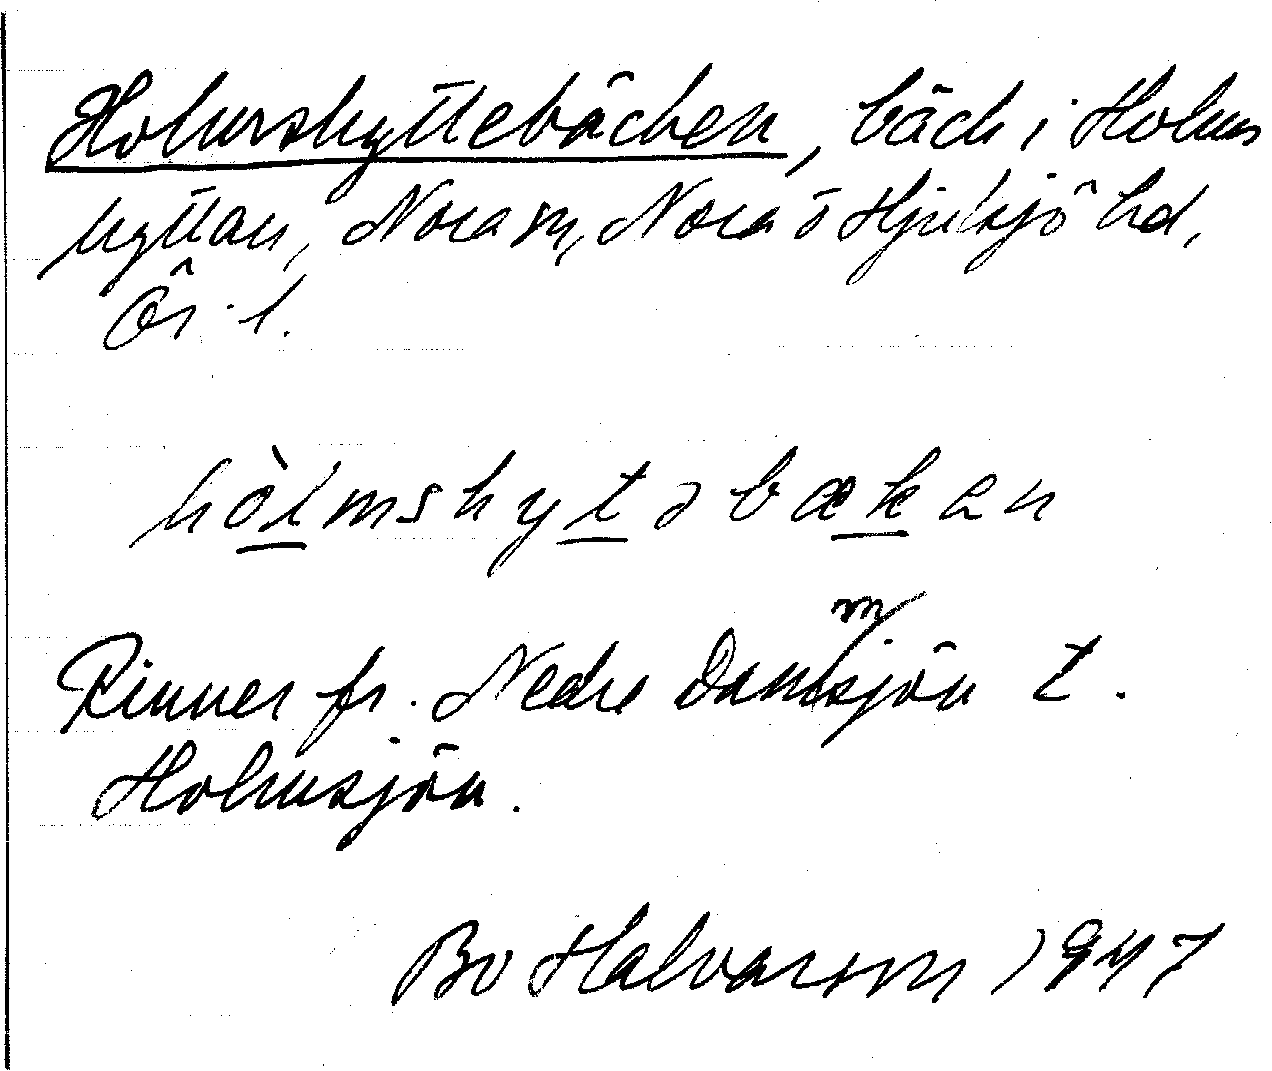 Holmshyttebäcken, bäck i Holms
hyttan, Nora sn, Nora o Hjulsjö hd,
Ör. l.
hòlmshytəbækən
Rinner fr. Nedre Dammsjön t.
Holmsjön.
Bo Halvarson 1947